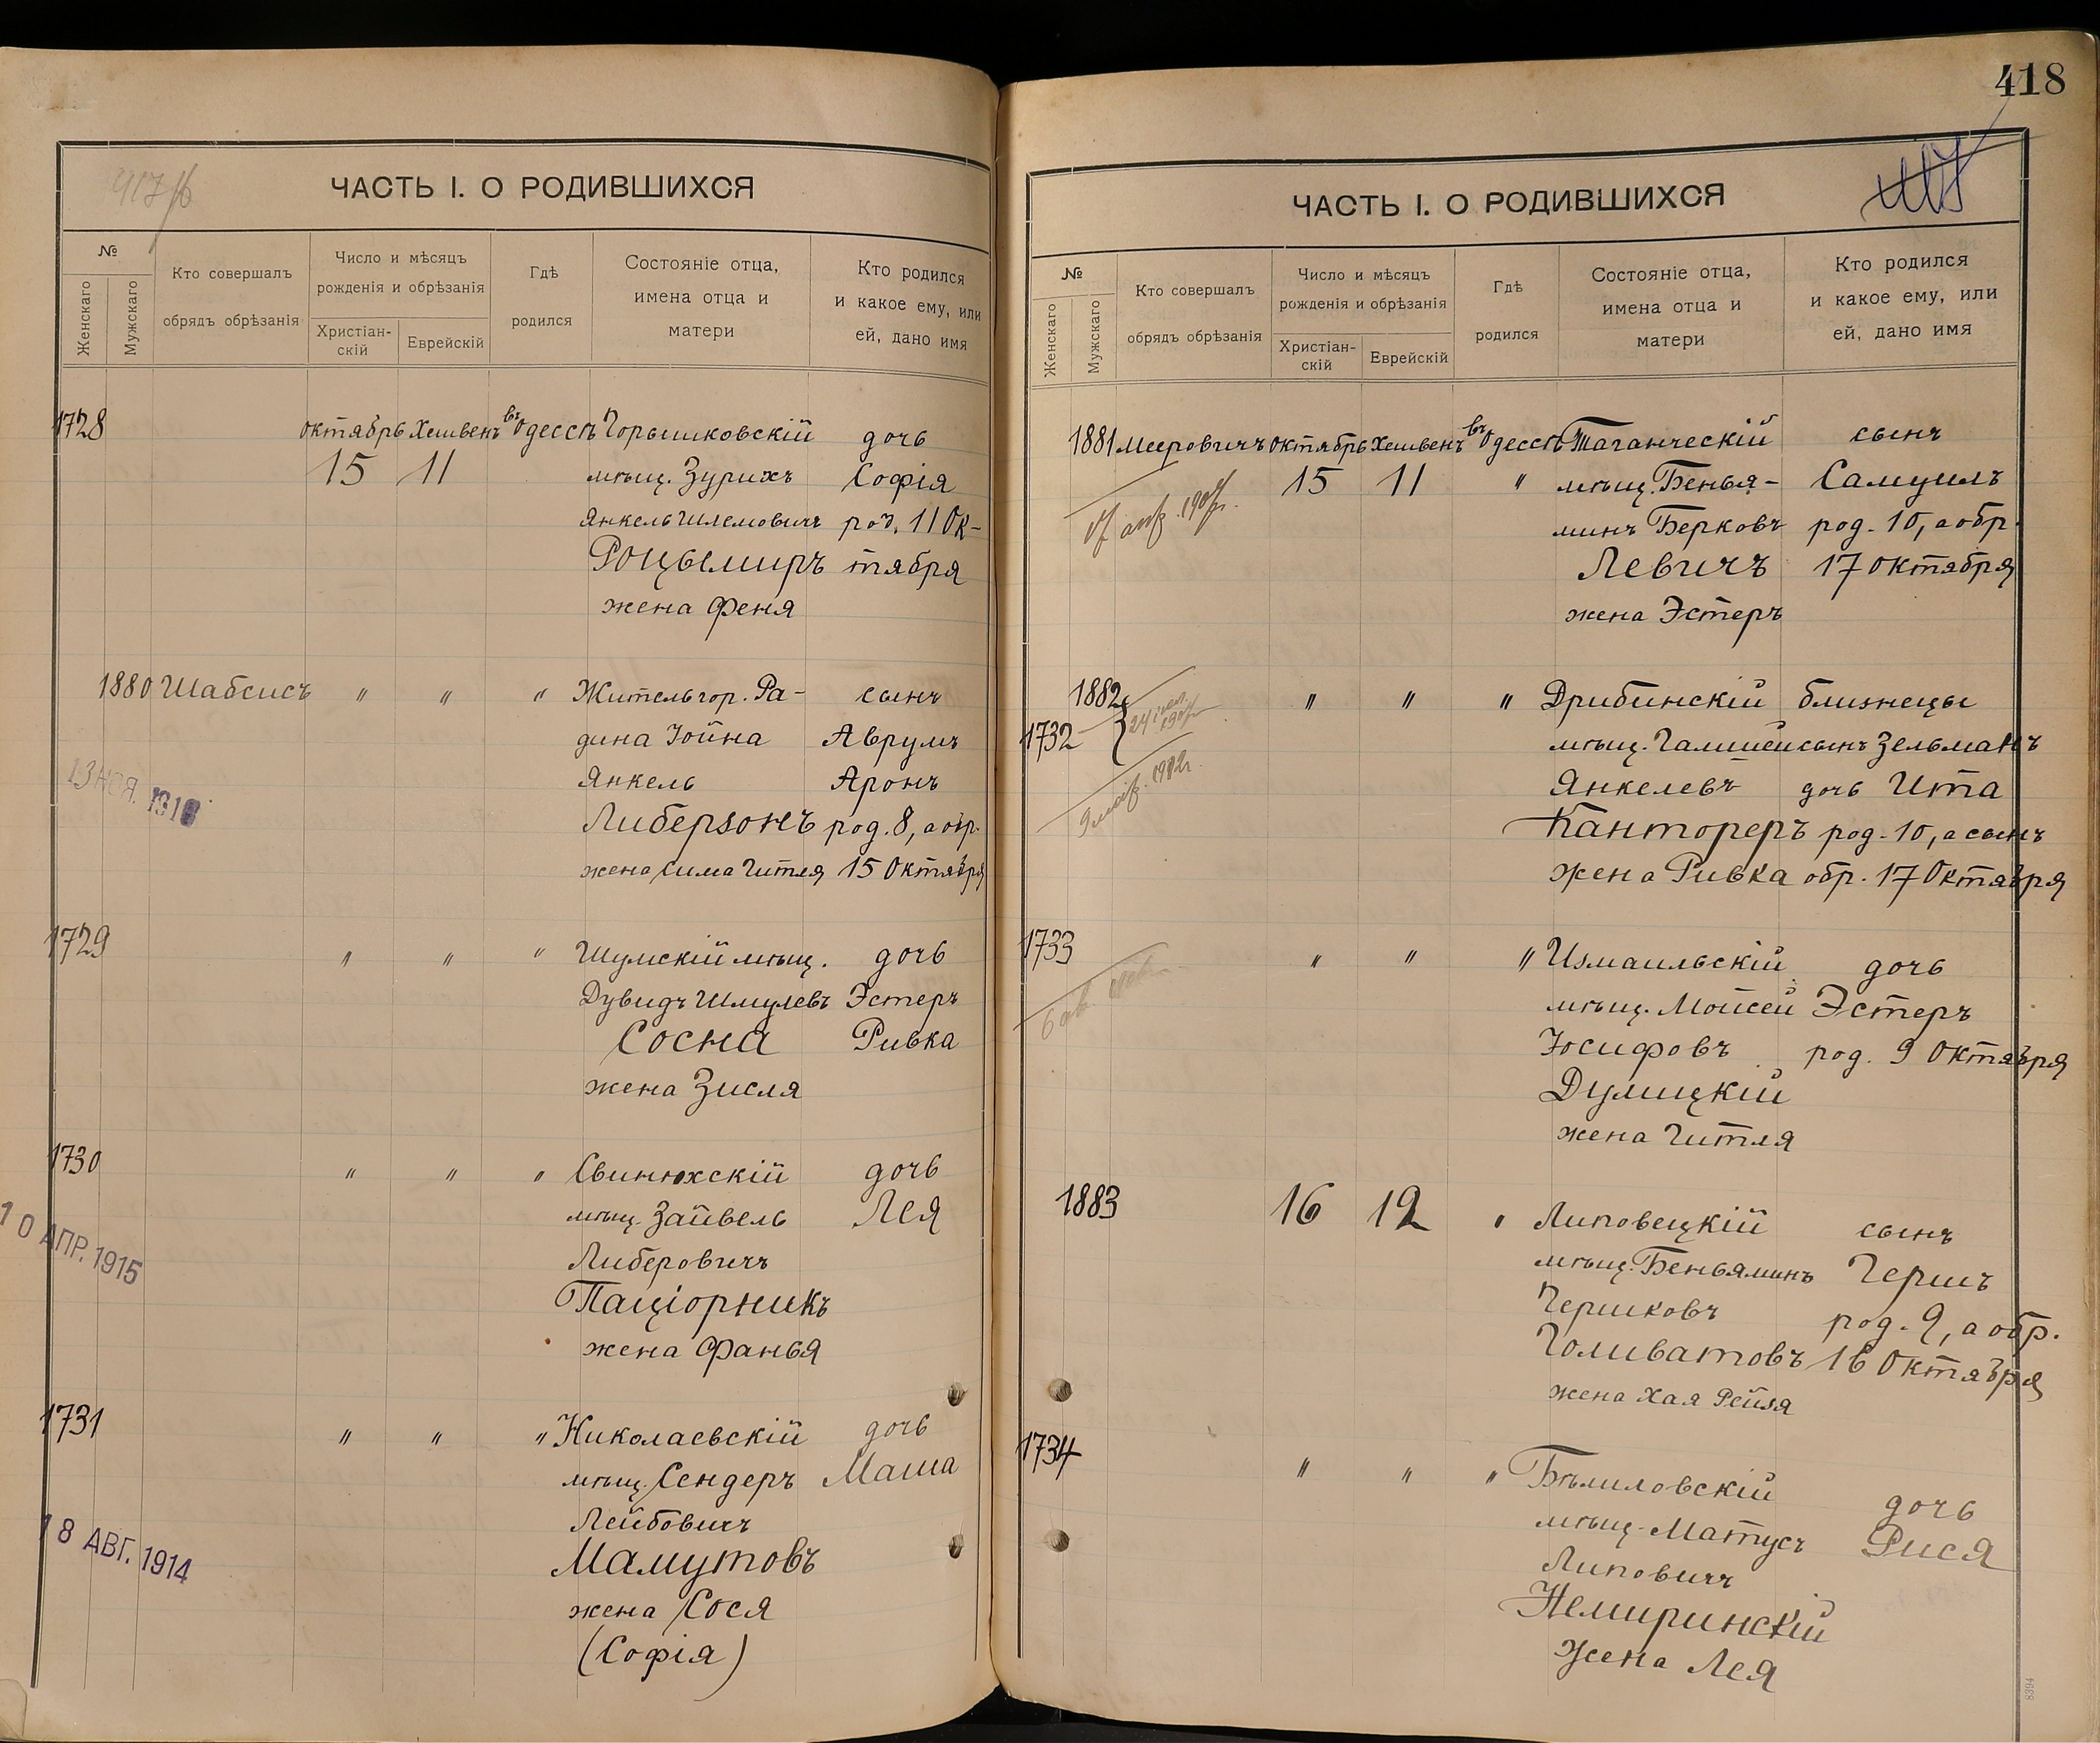 ЧАСТЬ I. О РОДИВШИХСЯ
№
Женскаго
Мужскаго
Кто совершалъ
обрядъ обрѣзанія
Число и мѣсяцъ
рожденія и обрѣзанія
Христіан-
скій
Еврейскій
Гдѣ
родился
Состояніе отца,
имена отца и
матери
Кто родился
и какое ему, или
ей, дано имя
1728 октябрь Хешвенъ въ Одессѣ Горышковскій дочь
15 11 мѣщ. Зурихъ Софія
Янкель Шлемовичъ род. 11 Ок-
Роцымиръ тября
жена Феня
1880 Шабсисъ " " " Житель гор. Ра- сынъ
дина Іойна Аврумъ
Янкель Аронъ
13 НОЯ. 191
Либерзонъ род. 8, а обр.
жена Сима Гитля 15 Октября
1729 " " " Шумскій мѣщ. дочь
Дувидъ Шмулевъ Эстеръ
Сосна Ривка
жена Зисля
1730 " " " Свинюхскій дочь
мѣщ. Зайвель Лея
10 АПР. 1915
Либеровичъ
Паціорникъ
жена Фанья
1731 " " " Николаевскій дочь
мѣщ. Сендеръ Маша
Лейбовичъ
18 АВГ. 1914
Мамутовъ
жена Сося
(Софія)
418
ЧАСТЬ I. О РОДИВШИХСЯ
№
Женскаго
Мужскаго
Кто совершалъ
обрядъ обрѣзанія
Число и мѣсяцъ
рожденія и обрѣзанія
Христіан-
скій
Еврейскій
Гдѣ
родился
Состояніе отца,
имена отца и
матери
Кто родился
и какое ему, или
ей, дано имя
1881 Мееровичъ октябрь Хешвенъ въ Одессѣ Таганческій сынъ
15 11 " мѣщ. Бенья- Самуилъ
минъ Берковъ род. 10, а обр.
Левичъ 17 октября
жена Эстеръ
1882 " " " Дрибинскій близнецы
1732 мѣщ. Галишеи сынъ Зельманъ
Янкелевъ дочь Ита
Кантореръ род. 10, а сынъ
жена Ривка обр. 17 Октября
1733 " " " Измаильскій дочь
мѣщ. Мойсей Эстеръ
Іосифовъ род. 9 Октября
Думицкій
жена Гитля
1883 16 12 " Липовецкій сынъ
мѣщ. Беньяминъ Гершъ
Гершковъ род. 9, а обр.
Голиватовъ 16 Октября
жена Хая Рейзя
1734 " " " Бѣлиловскій дочь
мѣщ. Матусъ Рися
Липовичъ
Немиринскій
жена Лея
8394